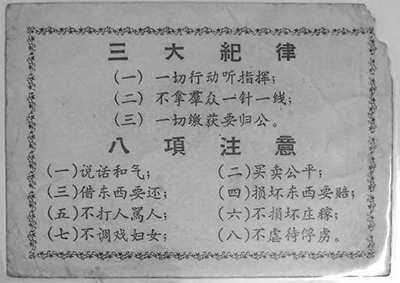 三大紀律
（一）一切行动听指挥；
（二）不拿羣众一针一线；
（三）一切缴获要归公。
八項注意
（一）说话和气； （二）买卖公平；
（三）借东西要还； （四）损坏东西要赔；
（五）不打人駡人； （六）不损坏庄稼；
（七）不调戏妇女； （八）不虐待俘虏。